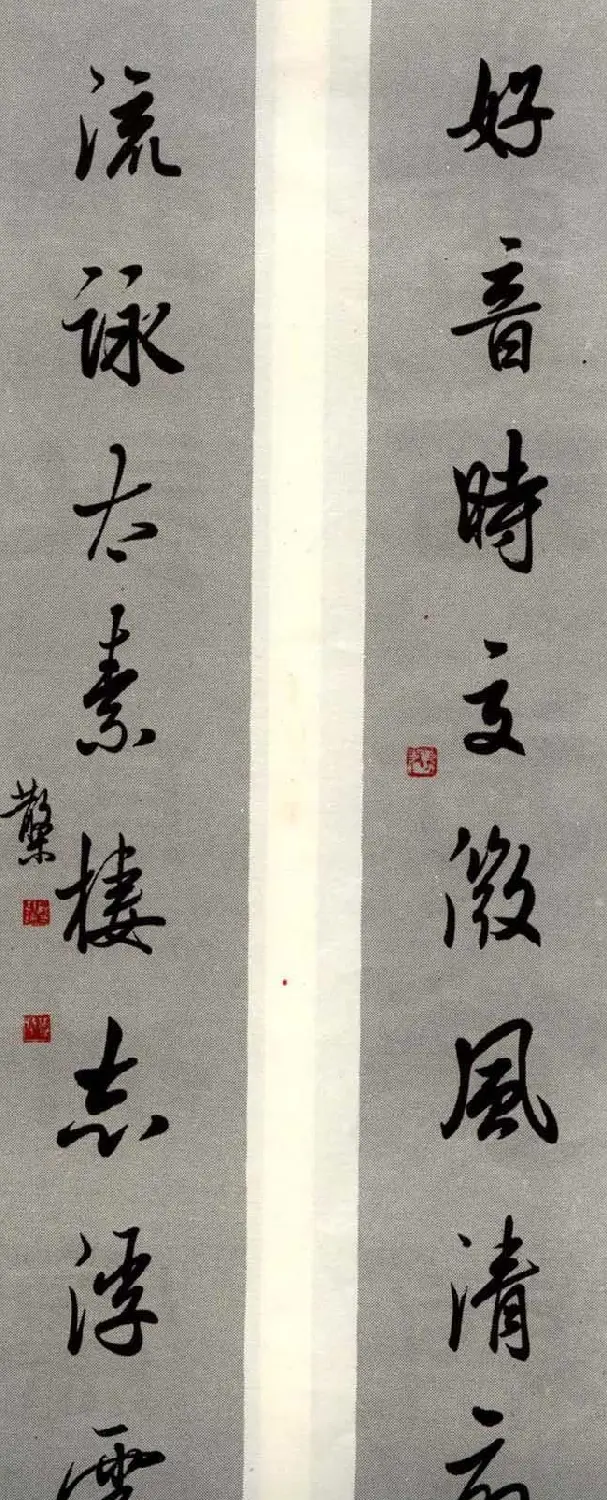 好音時交微風清扇
流詠太素棲志浮雲